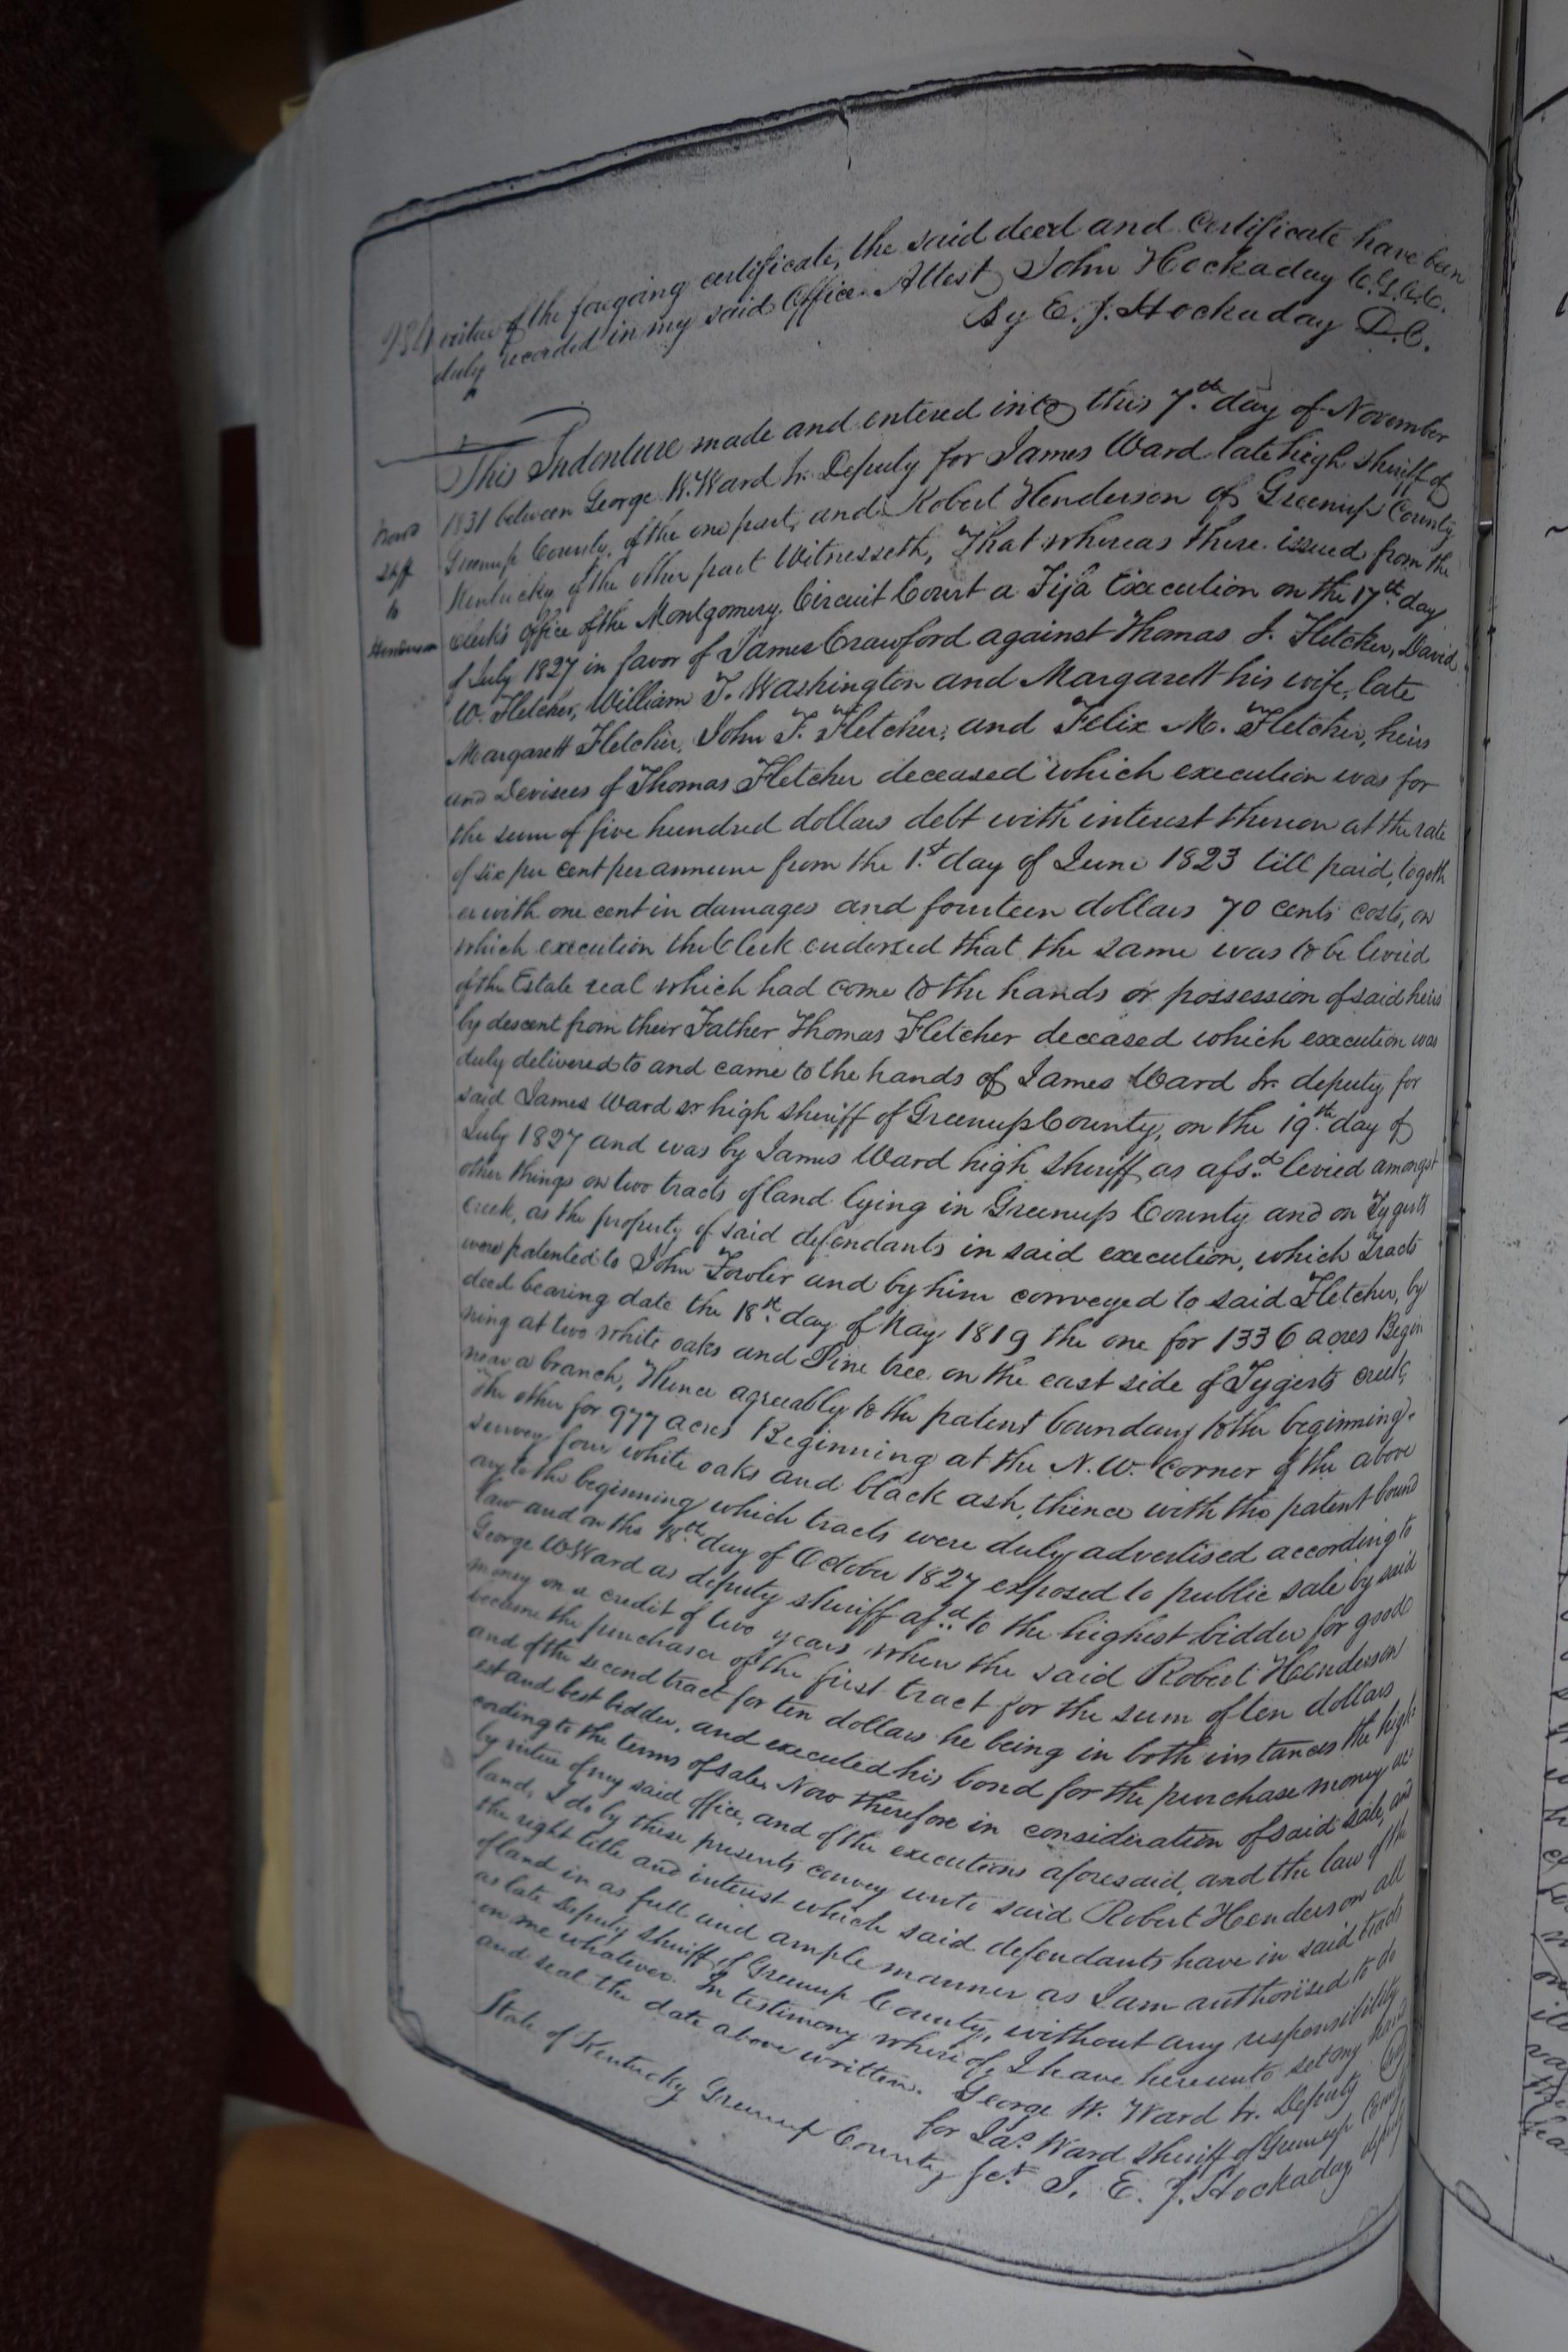 234 virtue of the foregoing certificate, the said deed and Certificate have been
duly recorded in my said Office. Attest, John Hockaday C.G.C.C.
By E. J. Hockaday D.C.
This Indenture made and entered into this 7th day of November
1831 between George W. Ward Jr. Deputy for James Ward late high sheriff of
Ward
Shff
to
Henderson
Greenup County, of the one part, and Robert Henderson of Greenup County
Kentucky of the other part Witnesseth, That whereas there issued from the
clerk's office of the Montgomery Circuit Court a Fifa Execution on the 17th day
of July 1827 in favor of James Crawford against Thomas J. Fletcher, David
W. Fletcher, William T. Washington and Margarett his wife, late
Margarett Fletcher, John F. Fletcher, and Felix M. Fletcher, heirs
and Devisees of Thomas Fletcher deceased which execution was for
the sum of five hundred dollars debt with interest thereon at the rate
of six per cent per annum from the 1st day of June 1823 till paid, togeth
er with one cent in damages and fourteen dollars 70 cents costs, on
which execution the Clerk endorsed that the same was to be levied
of the Estate real which had come to the hands or possession of said heirs
by descent from their Father Thomas Fletcher deceased which execution was
duly delivered to and came to the hands of James Ward Jr. deputy for
said James Ward sr high sheriff of Greenup County, on the 19th day of
July 1827 and was by James Ward high Sheriff as afsd levied amongst
other things on two tracts of land lying in Greenup County and on Tygerts
creek, as the property of said defendants in said execution, which Tracts
were patented to John Fowler and by him conveyed to said Fletcher, by
deed bearing date the 18th day of May 1819 the one for 1336 acres Begin
ning at two white oaks and Pine tree on the east side of Tygerts creek,
near a branch, Thence agreeably to the patent boundary to the beginning.
The other for 977 acres Beginning at the N.W. Corner of the above
survey four white oaks and black ash, thence with the patent bound
ary to the beginning which tracts were duly advertised according to
law and on the 18th day of October 1827 exposed to public sale by said
George W Ward as deputy sheriff afd to the highest bidder for good
money on a credit of two years when the said Robert Henderson
became the purchaser of the first tract for the sum of ten dollars
and of the second tract for ten dollars he being in both instances the high
est and best bidder, and executed his bond for the purchase money ac
cording to the terms of sale. Now therefore in consideration of said sale, and
by virtue of my said office, and of the executions aforesaid, and the law of the
land, I do by these presents convey unto said Robert Henderson all
the right title and interest which said defendants have in said tracts
of land in as full and ample manner as I am authorised to do
as late Deputy sheriff of Greenup County, without any responsibility
on me whatever. In testimony whereof, I have hereunto set my hand
and seal the date above written. George W. Ward Jr. Deputy
for Jas. Ward Sheriff of Greenup County
State of Kentucky Greenup County Sct. I, E. J. Hockaday, deputy